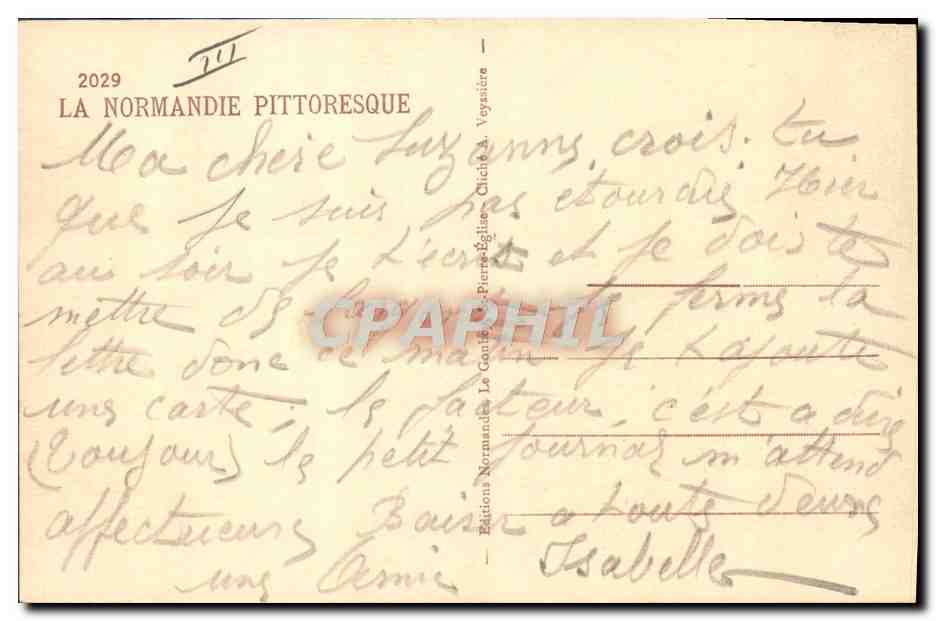 III
2029
LA NORMANDIE PITTORESQUE
Ma chère Suzanne, crois-tu
que je suis pas étourdie Hier
au soir je t'écrit et je dois te
mettre de je ferme la
lettre donc ce matin je t'ajoute
une carte; le facteur, c'est a dire
(toujour) le petit journal m'attend
affectueux Baiser a toute deux
une Amie Isabelle
Editions Normandes, Le Goubey, St-Pierre-Eglise - Cliché A. Veyssière
CPAPHIL